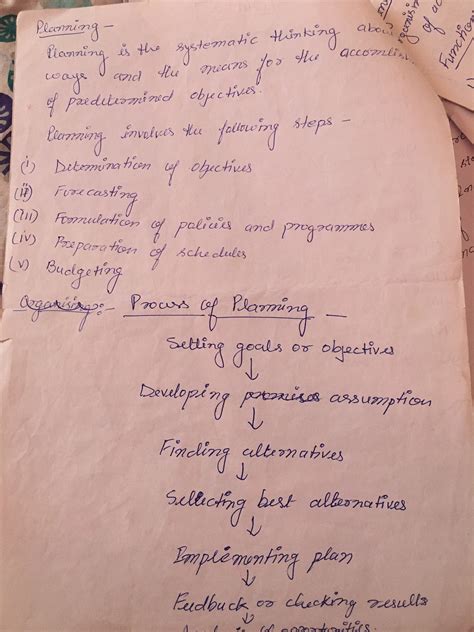 Planning –
Planning is the systematic thinking about
ways and the means for the
of predetermined objectives.
Planning involves the following steps –
(i) Determination of objectives
(ii) Forecasting
(iii) Formulation of policies and programmes
(iv) Preparation of schedules
(v) Budgeting
Organising:- Process of Planning –
Setting goals or objectives
↓
Developing assumption
↓
Finding alternatives
↓
Selecting best alternatives
↓
Implementing plan
↓
Feedback or checking results
of
of
Function